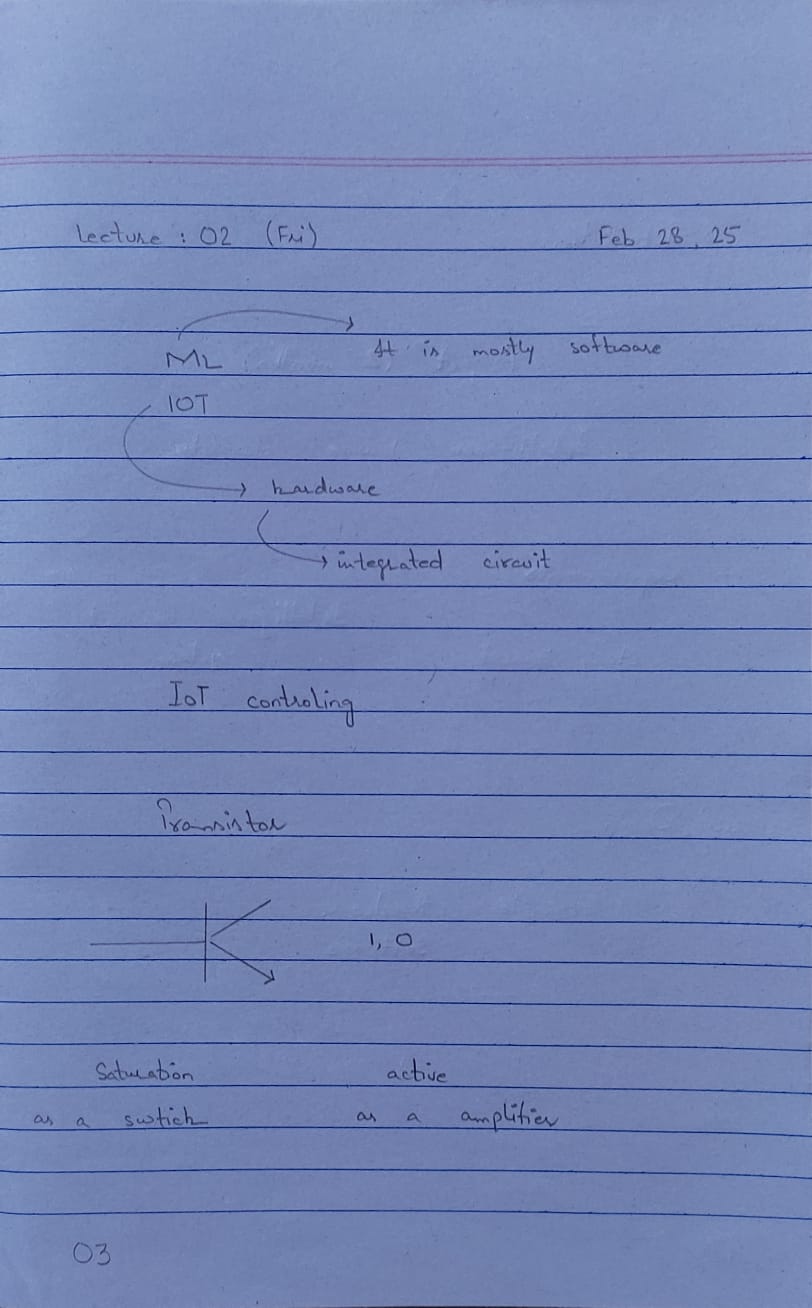 Lecture : 02 (Fri) Feb 28, 25
ML It is mostly software
IOT
hardware
integrated circuit
IoT controling
Transistor
1, 0
Saturation active
as a swtich as a amplifier
03